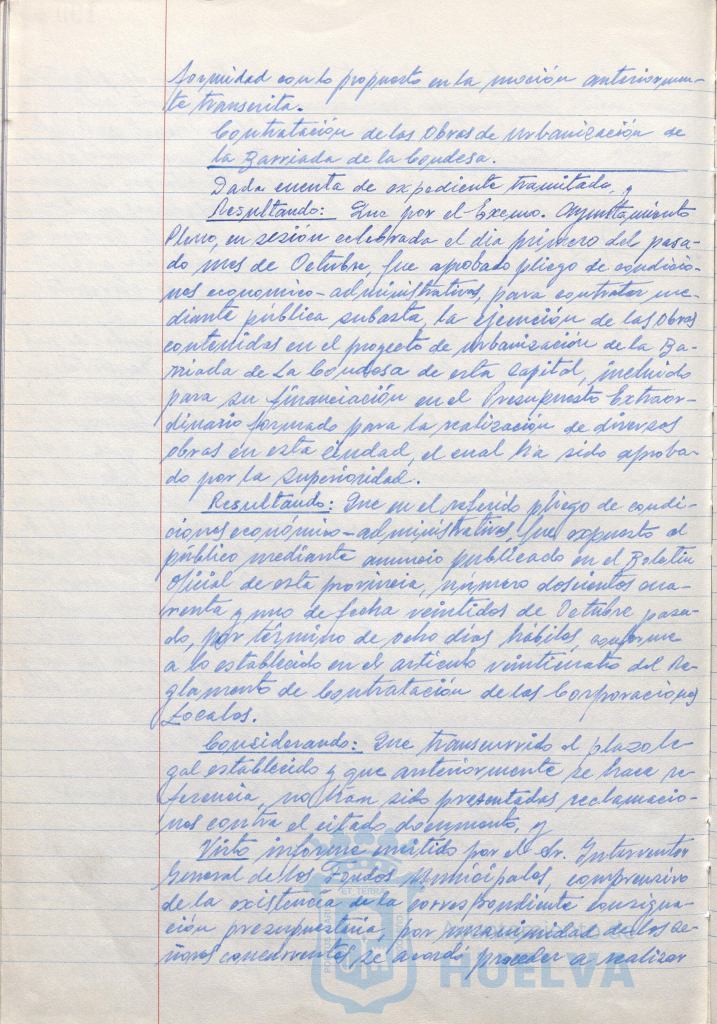 formidad con lo propuesto en la moción anteriormen-
te transcrita.
Contratación de las Obras de Urbanización de
la Barriada de la Condesa.
Dada cuenta de expediente tramitado, y
Resultando: Que por el Excmo. Ayuntamiento
Pleno, en sesión celebrada el dia primero del pasa-
do mes de Octubre, fue aprobado pliego de condicio-
nes economico-administrativas, para contratar me-
diante pública subasta, la ejecución de las Obras
contenidas en el proyecto de Urbanización de la Ba-
rriada de La Condesa de esta Capital, incluido
para su financiación en el Presupuesto Extraor-
dinario formado para la realización de diversas
obras en esta ciudad, el cual ha sido aproba-
do por la Superioridad.
Resultando: Que en el referido pliego de condi-
ciones económico-administrativas, fue expuesto al
público mediante anuncio publicado en el Boletin
Oficial de esta provincia, número doscientos cua-
renta y uno de fecha veintidos de Octubre pasa-
do, por término de ocho dias hábiles, conforme
a lo establecido en el articulo veinticuatro del Re-
glamento de Contratación de las Corporaciones
Locales.
Considerando: Que transcurrido el plazo le-
gal establecido y que anteriormente se hace re-
ferencia, no han sido presentadas reclamacio-
nes contra el citado documento, y
Visto informe emitido por el Sr. Interventor
General de los Fondos Municipales, comprensivo
de la existencia de la correspondiente consigna-
ción presupuestaria, por unanimidad de los se-
ñores concurrentes se acordó proceder a realizar
HUELVA